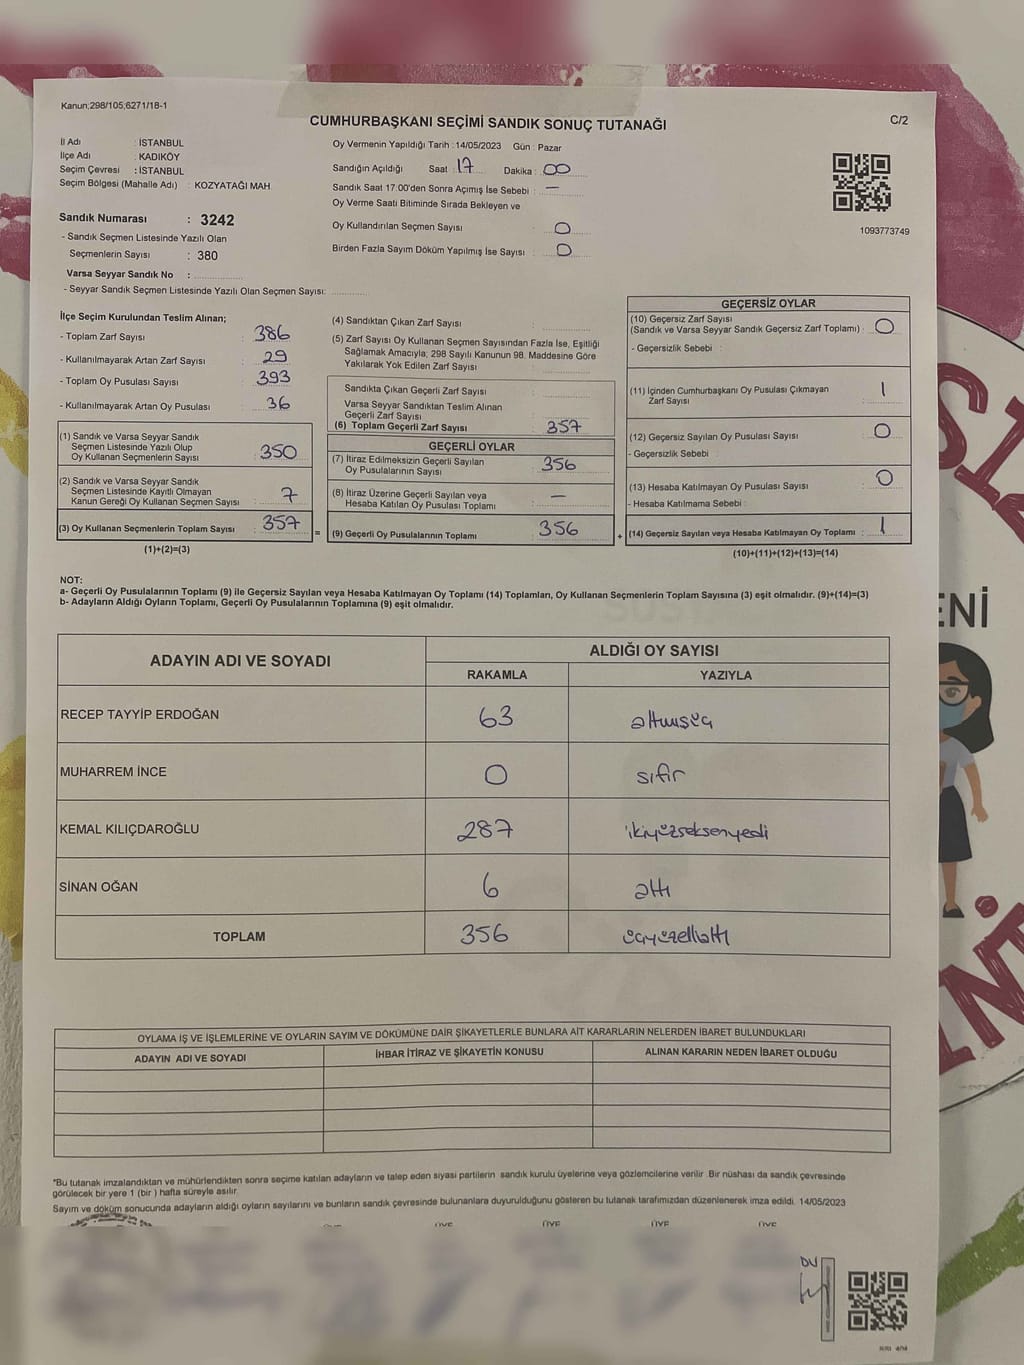 Kanun;298/105;6271/18-1
CUMHURBAŞKANI SEÇİMİ SANDIK SONUÇ TUTANAĞI
C/2
İl Adı : İSTANBUL
İlçe Adı : KADIKÖY
Seçim Çevresi : İSTANBUL
Seçim Bölgesi (Mahalle Adı) : KOZYATAĞI MAH.
Sandık Numarası : 3242
- Sandık Seçmen Listesinde Yazılı Olan
Seçmenlerin Sayısı : 380
Varsa Seyyar Sandık No :
- Seyyar Sandık Seçmen Listesinde Yazılı Olan Seçmen Sayısı:
Oy Vermenin Yapıldığı Tarih : 14/05/2023 Gün : Pazar
Sandığın Açıldığı Saat : 17 Dakika : 00
Sandık Saat 17:00'den Sonra Açımış İse Sebebi : —
Oy Verme Saati Bitiminde Sırada Bekleyen ve
Oy Kullandırılan Seçmen Sayısı : 0
Birden Fazla Sayım Döküm Yapılmış İse Sayısı : 0
1093773749
İlçe Seçim Kurulundan Teslim Alınan;
- Toplam Zarf Sayısı : 386
- Kullanılmayarak Artan Zarf Sayısı : 29
- Toplam Oy Pusulası Sayısı : 393
- Kullanılmayarak Artan Oy Pusulası : 36
(1) Sandık ve Varsa Seyyar Sandık
Seçmen Listesinde Yazılı Olup
Oy Kullanan Seçmenlerin Sayısı : 350
(2) Sandık ve Varsa Seyyar Sandık
Seçmen Listesinde Kayıtlı Olmayan
Kanun Gereği Oy Kullanan Seçmen Sayısı : 7
(3) Oy Kullanan Seçmenlerin Toplam Sayısı : 357
(1)+(2)=(3)
=
(4) Sandıktan Çıkan Zarf Sayısı :
(5) Zarf Sayısı Oy Kullanan Seçmen Sayısından Fazla İse, Eşitliği
Sağlamak Amacıyla; 298 Sayılı Kanunun 98. Maddesine Göre
Yakılarak Yok Edilen Zarf Sayısı :
Sandıkta Çıkan Geçerli Zarf Sayısı :
Varsa Seyyar Sandıktan Teslim Alınan
Geçerli Zarf Sayısı :
(6) Toplam Geçerli Zarf Sayısı : 357
GEÇERLİ OYLAR
(7) İtiraz Edilmeksizin Geçerli Sayılan
Oy Pusulalarının Sayısı : 356
(8) İtiraz Üzerine Geçerli Sayılan veya
Hesaba Katılan Oy Pusulası Toplamı : —
(9) Geçerli Oy Pusulalarının Toplamı : 356
+
GEÇERSİZ OYLAR
(10) Geçersiz Zarf Sayısı
(Sandık ve Varsa Seyyar Sandık Geçersiz Zarf Toplamı) : 0
- Geçersizlik Sebebi :
(11) İçinden Cumhurbaşkanı Oy Pusulası Çıkmayan
Zarf Sayısı : 1
(12) Geçersiz Sayılan Oy Pusulası Sayısı : 0
- Geçersizlik Sebebi :
(13) Hesaba Katılmayan Oy Pusulası Sayısı : 0
- Hesaba Katılmama Sebebi :
(14) Geçersiz Sayılan veya Hesaba Katılmayan Oy Toplamı : 1
(10)+(11)+(12)+(13)=(14)
NOT:
a- Geçerli Oy Pusulalarının Toplamı (9) ile Geçersiz Sayılan veya Hesaba Katılmayan Oy Toplamı (14) Toplamları, Oy Kullanan Seçmenlerin Toplam Sayısına (3) eşit olmalıdır. (9)+(14)=(3)
b- Adayların Aldığı Oyların Toplamı, Geçerli Oy Pusulalarının Toplamına (9) eşit olmalıdır.
ENİ
ADAYIN ADI VE SOYADI
ALDIĞI OY SAYISI
RAKAMLA YAZIYLA
RECEP TAYYİP ERDOĞAN 63 altmışüç
MUHARREM İNCE 0 sıfır
KEMAL KILIÇDAROĞLU 287 ikiyüzseksenyedi
SİNAN OĞAN 6 altı
TOPLAM 356 üçyüzellialtı
OYLAMA İŞ VE İŞLEMLERİNE VE OYLARIN SAYIM VE DÖKÜMÜNE DAİR ŞİKAYETLERLE BUNLARA AİT KARARLARIN NELERDEN İBARET BULUNDUKLARI
ADAYIN ADI VE SOYADI İHBAR İTİRAZ VE ŞİKAYETİN KONUSU ALINAN KARARIN NEDEN İBARET OLDUĞU
*Bu tutanak imzalandıktan ve mühürlendikten sonra seçime katılan adayların ve talep eden siyasi partilerin sandık kurulu üyelerine veya gözlemcilerine verilir .Bir nüshası da sandık çevresinde
görülecek bir yere 1 (bir ) hafta süreyle asılır.
Sayım ve döküm sonucunda adayların aldığı oyların sayılarını ve bunların sandık çevresinde bulunanlara duyurulduğunu gösteren bu tutanak tarafımızdan düzenlenerek imza edildi. 14/05/2023
ÜYE ÜYE ÜYE ÜYE